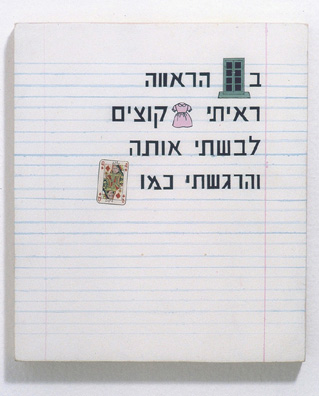 ב הראווה
ראיתי קוצים
לבשתי אותה
והרגשתי כמו